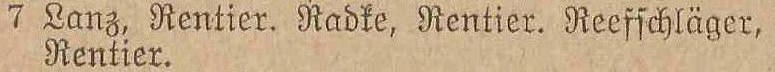 7 Lanz, Rentier. Radke, Rentier. Reefschläger,
Rentier.